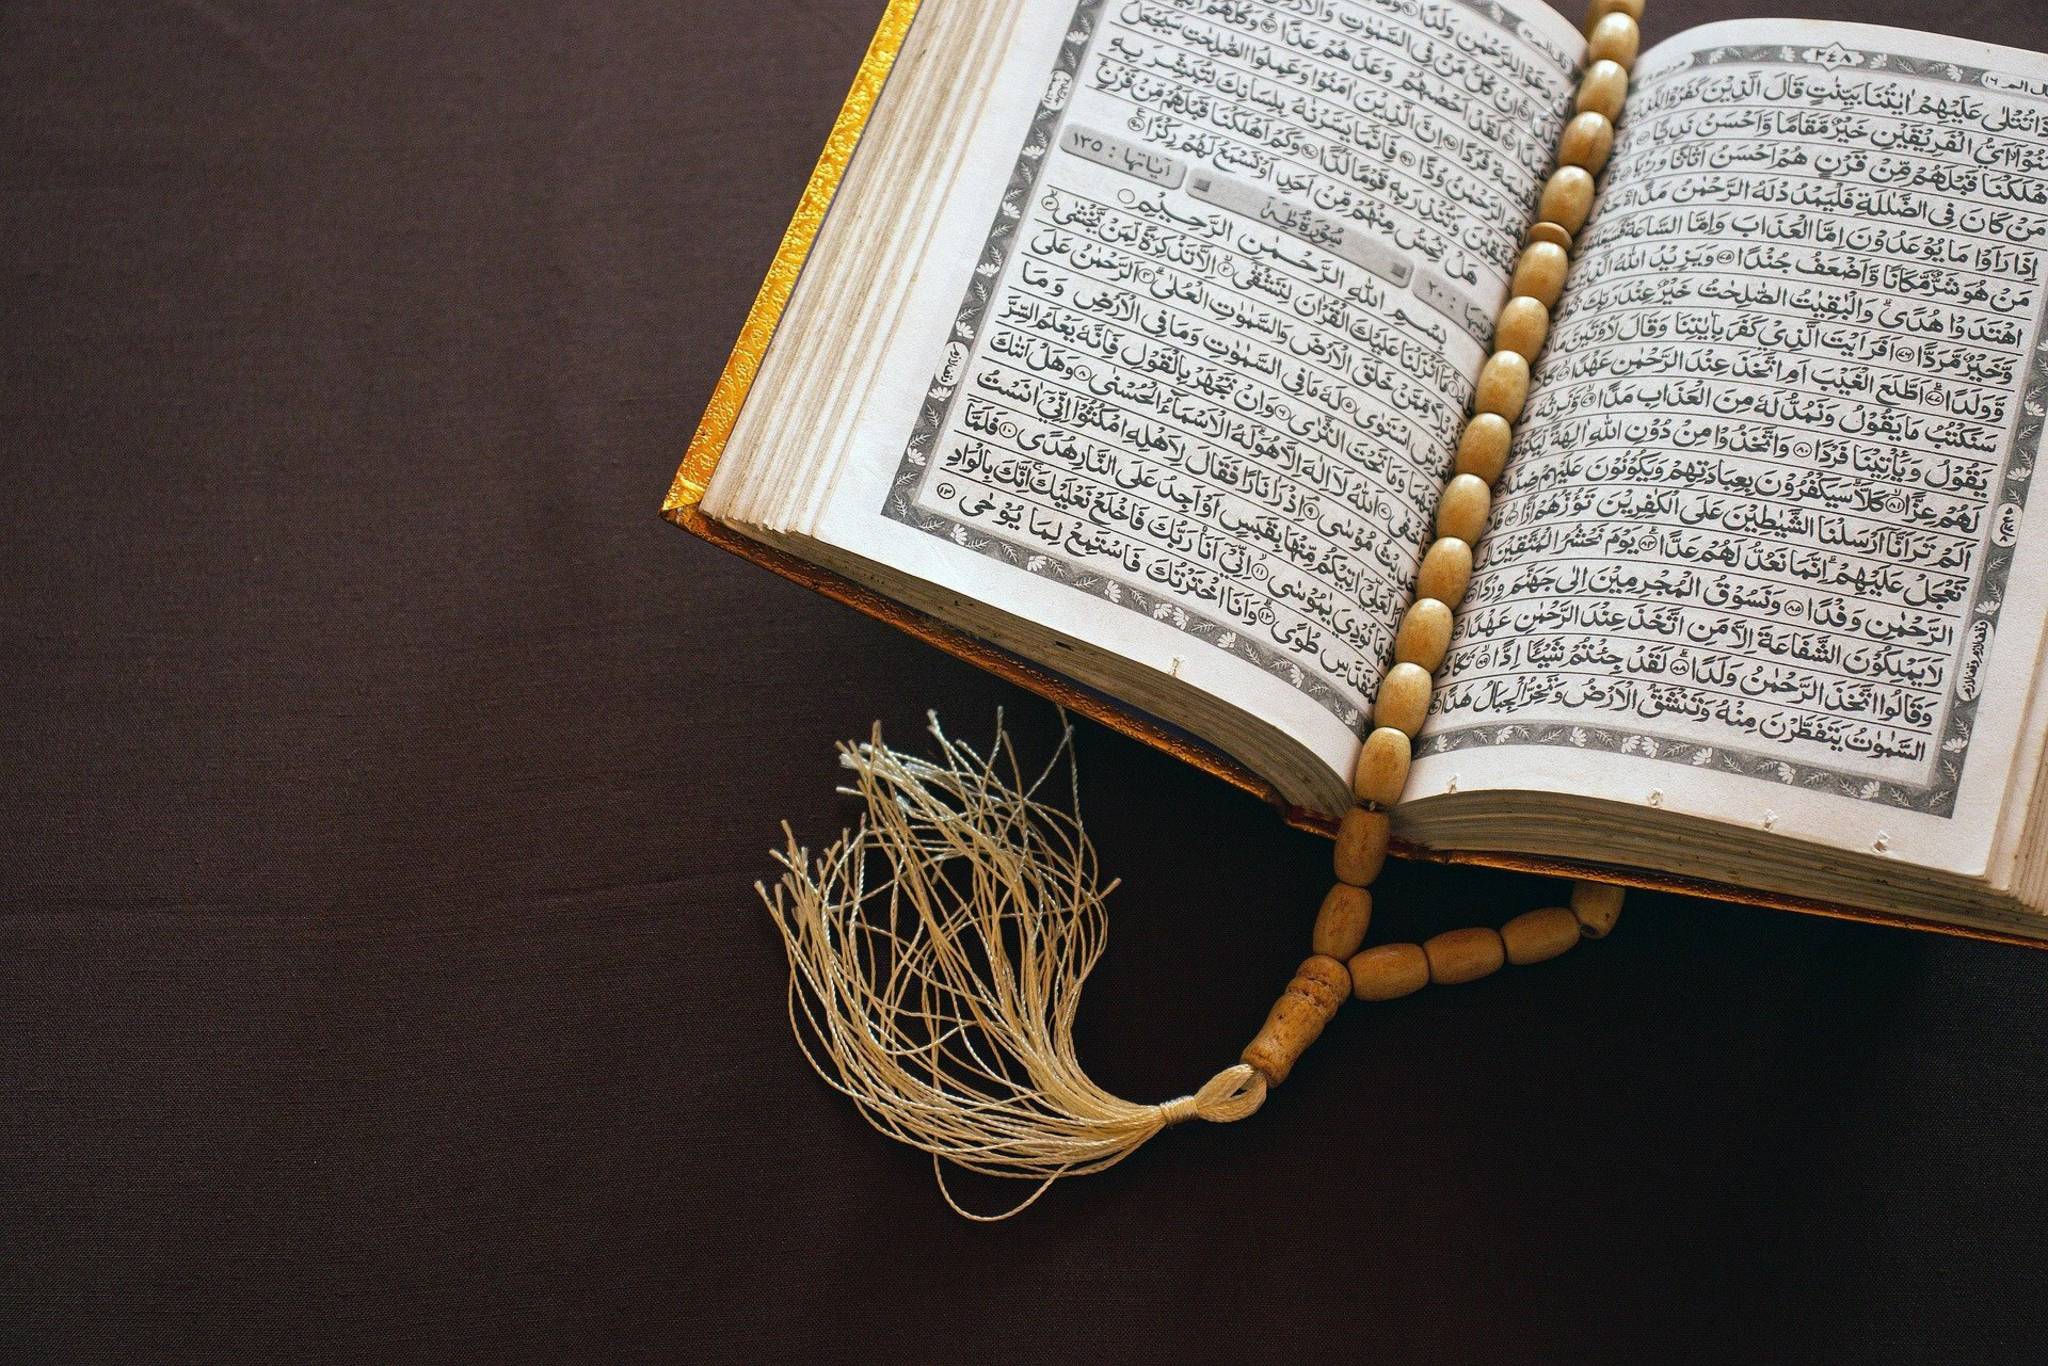 قال الم ١٦
٢٤٨
تُتْلٰى عَلَيْهِمْ اٰيٰتُنَا بَيِّنٰتٍ قَالَ الَّذِيْنَ كَفَرُوْا لِلَّذِيْنَ
اَيُّ الْفَرِيْقَيْنِ خَيْرٌ مَّقَامًا وَّاَحْسَنُ نَدِيًّا
اَهْلَكْنَا قَبْلَهُمْ مِّنْ قَرْنٍ هُمْ اَحْسَنُ اَثَاثًا وَّرِءْيًا
مَنْ كَانَ فِي الضَّلٰلَةِ فَلْيَمْدُدْ لَهُ الرَّحْمٰنُ مَدًّا
اِذَا رَاَوْا مَا يُوْعَدُوْنَ اِمَّا الْعَذَابَ وَاِمَّا السَّاعَةَ فَسَيَعْلَمُوْنَ
مَنْ هُوَ شَرٌّ مَّكَانًا وَّاَضْعَفُ جُنْدًا ۝٧٥ وَيَزِيْدُ اللّٰهُ الَّذِيْنَ
اهْتَدَوْا هُدًى وَالْبٰقِيٰتُ الصّٰلِحٰتُ خَيْرٌ عِنْدَ رَبِّكَ ثَوَابًا
وَّخَيْرٌ مَّرَدًّا ۝٧٦ اَفَرَاَيْتَ الَّذِيْ كَفَرَ بِاٰيٰتِنَا وَقَالَ لَاُوْتَيَنَّ مَالًا
وَّوَلَدًا ۝٧٧ اَطَّلَعَ الْغَيْبَ اَمِ اتَّخَذَ عِنْدَ الرَّحْمٰنِ عَهْدًا ۝٧٨ كَلَّا
سَنَكْتُبُ مَا يَقُوْلُ وَنَمُدُّ لَهٗ مِنَ الْعَذَابِ مَدًّا ۝٧٩ وَّنَرِثُهٗ
يَقُوْلُ وَيَاْتِيْنَا فَرْدًا ۝٨٠ وَاتَّخَذُوْا مِنْ دُوْنِ اللّٰهِ اٰلِهَةً لِّيَكُوْنُوْا
لَهُمْ عِزًّا ۝٨١ كَلَّا سَيَكْفُرُوْنَ بِعِبَادَتِهِمْ وَيَكُوْنُوْنَ عَلَيْهِمْ ضِدًّا
اَلَمْ تَرَ اَنَّا اَرْسَلْنَا الشَّيٰطِيْنَ عَلَى الْكٰفِرِيْنَ تَؤُزُّهُمْ اَزًّا ۝٨٣ فَلَا
تَعْجَلْ عَلَيْهِمْ اِنَّمَا نَعُدُّ لَهُمْ عَدًّا ۝٨٤ يَوْمَ نَحْشُرُ الْمُتَّقِيْنَ اِلَى
الرَّحْمٰنِ وَفْدًا ۝٨٥ وَّنَسُوْقُ الْمُجْرِمِيْنَ اِلٰى جَهَنَّمَ وِرْدًا
لَا يَمْلِكُوْنَ الشَّفَاعَةَ اِلَّا مَنِ اتَّخَذَ عِنْدَ الرَّحْمٰنِ عَهْدًا
وَقَالُوا اتَّخَذَ الرَّحْمٰنُ وَلَدًا ۝٨٨ لَقَدْ جِئْتُمْ شَيْـًٔا اِدًّا ۝٨٩ تَكَادُ
السَّمٰوٰتُ يَتَفَطَّرْنَ مِنْهُ وَتَنْشَقُّ الْاَرْضُ وَتَخِرُّ الْجِبَالُ هَدًّا
دَعَوْا لِلرَّحْمٰنِ وَلَدًا ۝٩١ وَمَا
اِنْ كُلُّ مَنْ فِي السَّمٰوٰتِ وَالْاَرْضِ
لَقَدْ اَحْصٰىهُمْ وَعَدَّهُمْ عَدًّا ۝٩٤ وَكُلُّهُمْ اٰتِيْهِ
فَرْدًا ۝٩٥ اِنَّ الَّذِيْنَ اٰمَنُوْا وَعَمِلُوا الصّٰلِحٰتِ سَيَجْعَلُ
الرَّحْمٰنُ وُدًّا ۝٩٦ فَاِنَّمَا يَسَّرْنٰهُ بِلِسَانِكَ لِتُبَشِّرَ بِهِ
وَتُنْذِرَ بِهٖ قَوْمًا لُّدًّا ۝٩٧ وَكَمْ اَهْلَكْنَا قَبْلَهُمْ مِّنْ قَرْنٍ
هَلْ تُحِسُّ مِنْهُمْ مِّنْ اَحَدٍ اَوْ تَسْمَعُ لَهُمْ رِكْزًا ۝٩٨
٢٠ سُوْرَةُ طٰهٰ اٰيَاتُهَا : ١٣٥
بِسْمِ اللّٰهِ الرَّحْمٰنِ الرَّحِيْمِ
مَا اَنْزَلْنَا عَلَيْكَ الْقُرْاٰنَ لِتَشْقٰى ۝٢ اِلَّا تَذْكِرَةً لِّمَنْ يَّخْشٰى ۝٣
مِّمَّنْ خَلَقَ الْاَرْضَ وَالسَّمٰوٰتِ الْعُلٰى ۝٤ اَلرَّحْمٰنُ عَلَى
اسْتَوٰى ۝٥ لَهٗ مَا فِي السَّمٰوٰتِ وَمَا فِي الْاَرْضِ وَمَا
وَمَا تَحْتَ الثَّرٰى ۝٦ وَاِنْ تَجْهَرْ بِالْقَوْلِ فَاِنَّهٗ يَعْلَمُ السِّرَّ
اَللّٰهُ لَا اِلٰهَ اِلَّا هُوَ لَهُ الْاَسْمَاءُ الْحُسْنٰى ۝٨ وَهَلْ اَتٰىكَ
حَدِيْثُ مُوْسٰى ۝٩ اِذْ رَاٰ نَارًا فَقَالَ لِاَهْلِهِ امْكُثُوْا اِنِّيْ اٰنَسْتُ
لَّعَلِّيْ اٰتِيْكُمْ مِّنْهَا بِقَبَسٍ اَوْ اَجِدُ عَلَى النَّارِ هُدًى ۝١٠ فَلَمَّا
نُوْدِيَ يٰمُوْسٰى ۝١١ اِنِّيْ اَنَا رَبُّكَ فَاخْلَعْ نَعْلَيْكَ اِنَّكَ بِالْوَادِ
الْمُقَدَّسِ طُوًى ۝١٢ وَاَنَا اخْتَرْتُكَ فَاسْتَمِعْ لِمَا يُوْحٰى ۝١٣